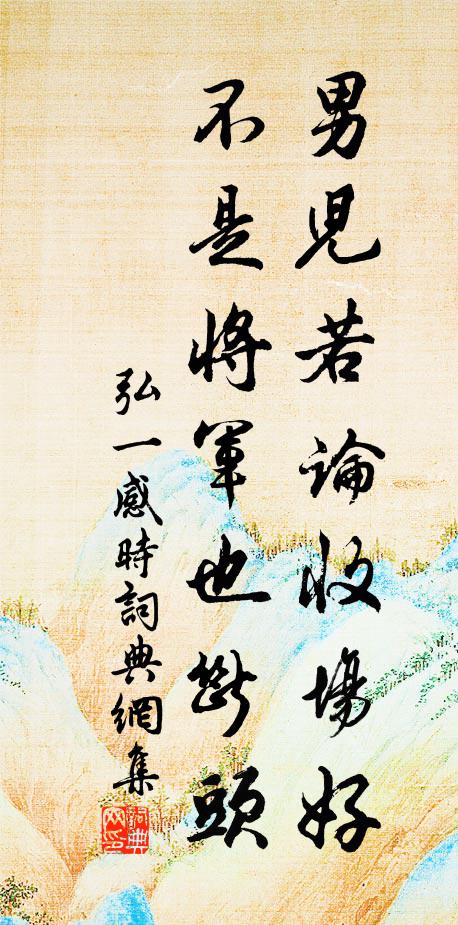 男児若論收場好
不是將軍也斷頭
弘一感時詞典網集
詞典
网印